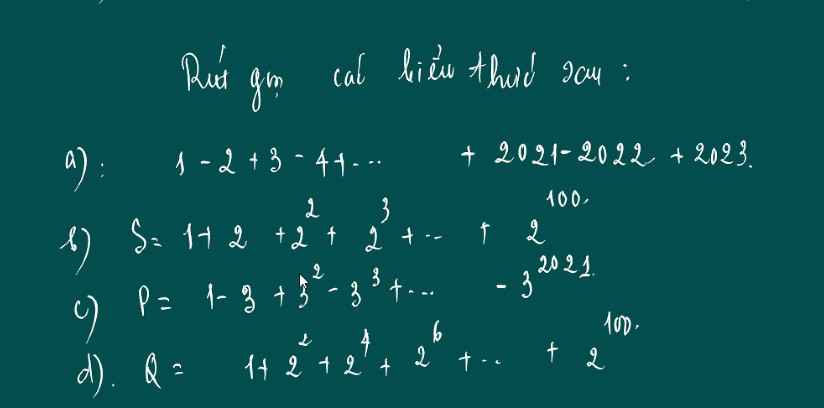 Rút gọn các biểu thức sau :
a) : 1 - 2 + 3 - 4 + ... + 2021 - 2022 + 2023.
b) S = 1 + 2 + 2² + 2³ + ... + 2¹⁰⁰.
c) P = 1 - 3 + 3² - 3³ + ... - 3²⁰²¹.
d). Q = 1 + 2² + 2⁴ + 2⁶ + ... + 2¹⁰⁰.